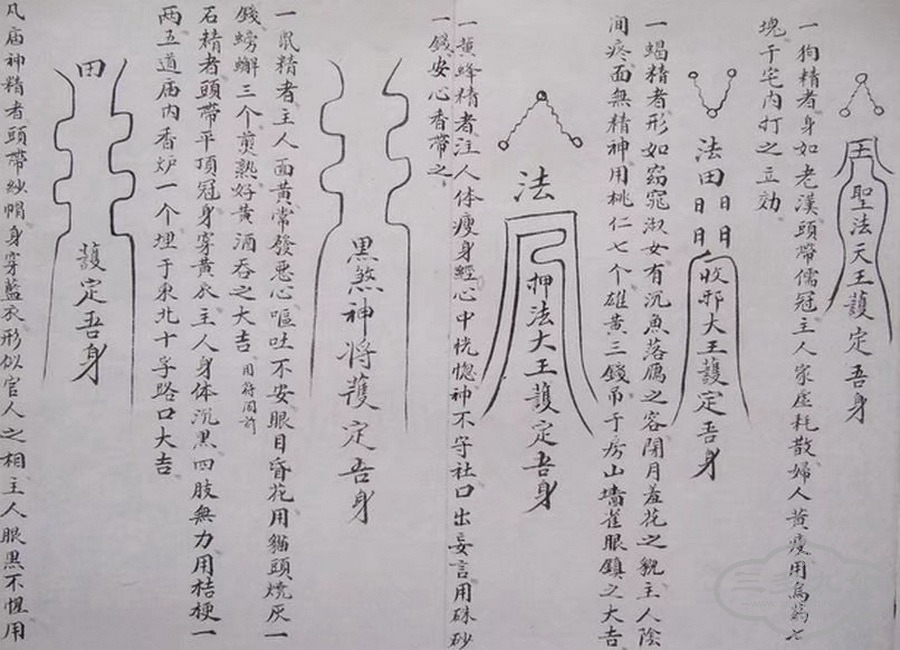 王聖法天王護定吾身
一狗精者身如老漢頭帶儒冠主人家虛耗散婦人黃瘦用烏鷄七
塊于宅內打之立効
法田日日日日收邪大王護定吾身
一蝎精者形如窈窕淑女有沉魚落鴈之容閉月羞花之貌主人陰
间疼面無精神用桃仁七个雄黃三錢吊于房山墻雀眼鎮之大吉
法
押法大王護定吾身
一黃蜂精者注人体瘦身輕心中恍惚神不守社口出妄言用硃砂
一錢安心香帶之
黑煞神将護定吾身
一鼠精者主人面黃常發惡心嘔吐不安眼目昏花用貓頭燒灰一
錢螃蠏三个煎熟好黃酒吞之大吉用符同前
石精者頭帶平頂冠身穿黃衣主人身体沉黑四肢無力用桔梗一
两五道庙内香炉一个埋于東北十字路口大吉
田護定吾身
凡庙神精者頭帶紗帽身穿藍衣形似官人之相主人眼黑不惺用